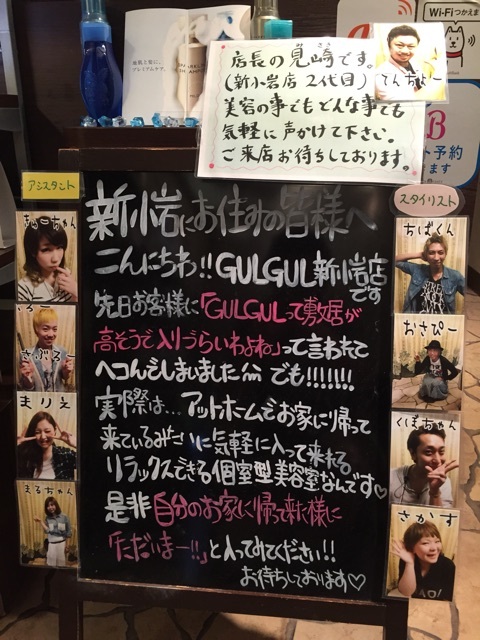 Wi-Fiつかえます
店長の見崎です。
(新小岩店 2代目)
美容の事でもどんな事でも
気軽に声かけて下さい。
ご来店お待ちしております。
てんちょー
ト予約
ます
アシスタント
スタイリスト
さぶろー
まりえ
まるちゃん
ちばくん
おさぴー
くぼちゃん
さかす
新小岩にお住みの皆様へ
こんにちわ!!GULGUL新小岩店
です
先日お客様に「GULGULって敷居が
高そうで入りづらいわよね」って言われて
ヘコんでしまいました でも!!!!!!!
実際は...アットホームでお家に帰って
来ているみたいに気軽に入って来れる
リラックスできる個室型美容室なんです♡
是非自分のお家に帰って来た様に
「ただいまー!!」と入ってみてください!!
お待ちしております♡